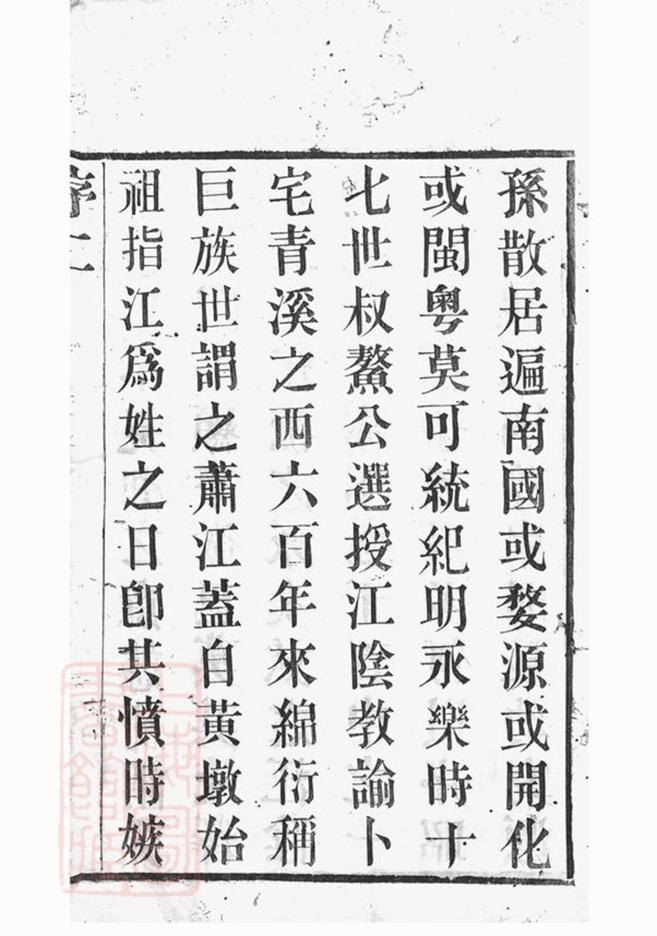 孫散居遍南國或婺源或開化
或閩粤莫可統紀明永樂時十
七世叔鰲公選授江陰教諭卜
宅青溪之西六百年來綿衍稱
巨族世謂之蕭江蓋自黄墩始
祖指江爲姓之日卽共憤時嫉
序二